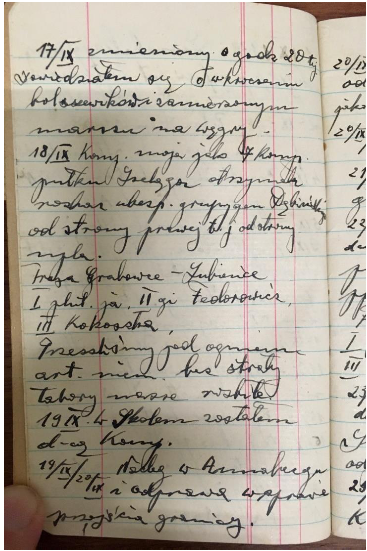 17/IX zmieniony o godz 20tej
dowiedziałem się o wkroczeniu
bolszewików i zamierzonym
marszu na węgry.
18/IX Komp. moja jako 7 komp.
pułku Strzelców otrzymała
rozkaz ubezp. grupy gen Dębińskiej
od strony prawej t.j od strony
npla.
Trasa Grabowce - Lubience
I plut. ja, II gi Fedorowicz,
III Kokoszka,
Przeszliśmy pod ogniem
art. niem. bez straty
tabory nasze rozbite
19 IX w Skolem zostałem
d-cą komp.
19/IX/20/IX Nocleg w Annabergu
i odprawa w sprawie
przejścia granicy.
20/IX
od
jako
20/IX
21/
g
I
III